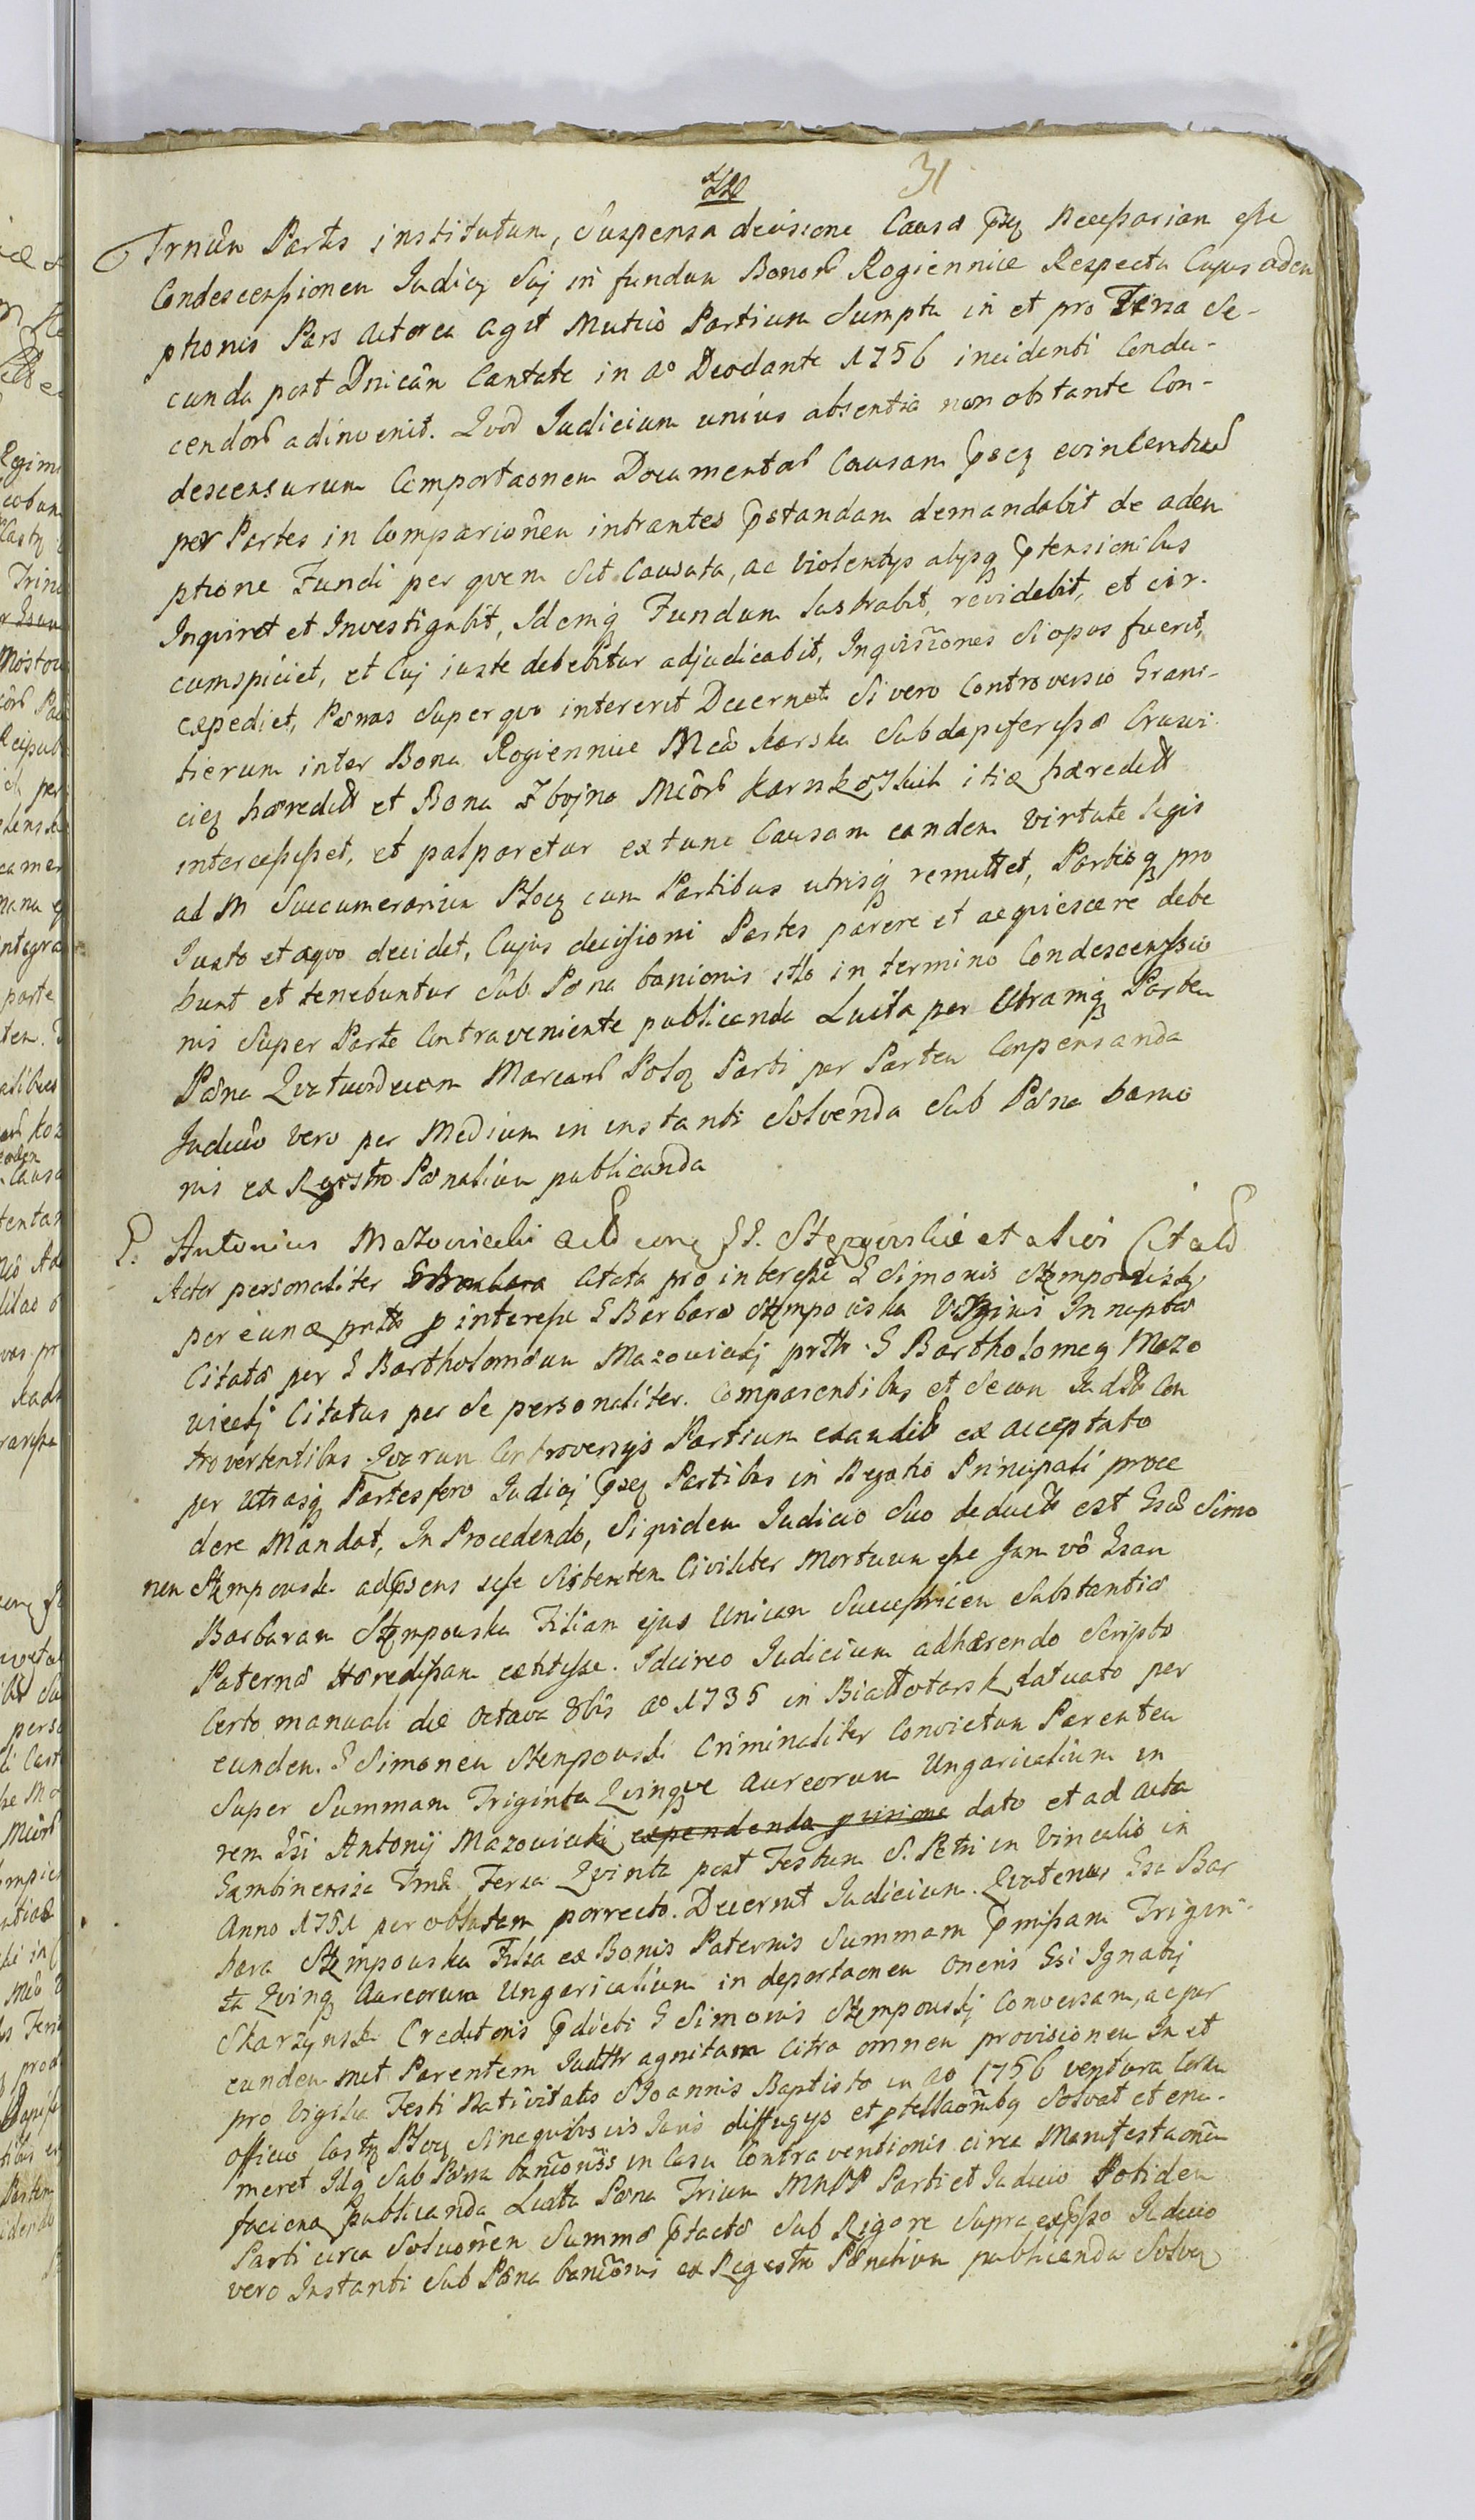 31
Trnûn Partis institutum, Suspensa decisione Causæ pntq Necessarian esse
Condescensionem Judicij Suj in fundum Bonoʀ Rogiennice Respectu Cujus adem
ptionis Pars Actorea agit Mutuò Partium Sumptu in et pro Feria Se-
cunda post Dnicâm Cantate in Aº Deodante 1756 incidenti Conde-
cendoʀ adinvenit. Qvod Judicium unius absentia non obstante Con-
descensurum Comportaonem Documentoʀ Causam pntq evincentiuʀ
per Partes in Comparionem intrantes pstandam demandabit de adem
ptione Fundi per qvem Sit Causata, ac Violentijs alijsq ptensionibus
Inqviret et Investigabit, Idemq Fundum lustrabit, revidebit, et cir-
cumspiciet, et Cuj iuste debebitur adjudicabit, Inqvisiones Si opus fuerit,
expediet, Pœnas Super qvo intererit Decernet Si vero Controversia Grani-
tierum inter Bona Rogiennice Mcæ Karska Subdapiferissæ Crusvi
cieq hæreditt et Bona Zbojno Mcôʀ Karnkowskich itiq hæreditt
intercessisset, et palparetur ex tunc Causam eandem virtute legis
ad M Succamerarium Plocq cum Partibus utrisq remittet, Partibq pro
Justo et æqvo decidet, Cujus decisioni Partes parere et acqviescere debe
bunt et tenebuntur Sub Pœna banionis itto in termino Condescenssio
nis Super Parte Contraveniente publicanda Luita per Utramq Partem
Pœna Qvatuordecem Marcarʀ Poloq Parti per Partem Conpensanda
Judicio vero per Medium in instanti Solvenda Sub Pœna banio
nis ex Regestro Pœnalium publicanda
G. Antonius Mazowiecki Act cong GG. Stempowskie et alios Citat
Actor personaliter Citata pro interesse G Simonis Stempowskj
per eundq prtto p interesse G Barbaræ Stempowska Virginis Innuptæ
Citatæ per G Bartholomæum Mazowieckj prtto G Bartholomeq Mazo
wieckj Citatus per Se personaliter. Comparentibus et Secum Judtt Con
trovertentibus Qvarum Controversijs Partium exaudit ex acceptato
per Utrasq Partes foro Judicij pntq Partibus in Negotio Principali proce
dere Mandat, In Procedendo, Siqvidem Judicio Suo deductt est Gsû Simo
nem Stempowski ad psens esse Sistentem Civiliter Mortuum esse Jam vô Gsam
Barbaram Stempowska Filiam ejus Unicam Successricem Substantiæ
Paternæ Hæredissam extitisse. Idcirco Judicium adhærendo Scripto
Certo manuali die Octava 8bris aº 1735 in Biattotarsk datuato per
eundem. G Simonem Stempowski Criminaliter Convictum Parentem
Super Summam Triginta Qvinqve Aureorum Ungaricalium in
rem Gsi Antonij Mazowiecki expendenda pvisione dato et ad Acta
Gambinensia Fma Feria Qvinta post Festum S. Petri in Vinculis in
Anno 1751 per oblatam porrecto. Decernit Judicium. Qvatenus Gsa Bar
bara Stempowska Filia ex Bonis Paternis Summam pmissam Trigin-
ta Qvinq Aureorum Ungaricalium in deportaonem Oneris Gsi Ignatij
Skarzynski Creditoris pdicti G Simonis Stempowskj Conversam, ac per
eundem met Parentem Judttr agnitam Citra omnem provisionem In et
pro Vigilia Festi Nativitatis S Joannis Baptistæ in aº 1756 ventura Coram
Officio Castrq Plocq Sineqvibusvis Juris diffugys et ptellaõnibq Solvat et enu-
meret Idq Sub Pœna bancionis in Casu Contraventionis circa Manifestaonem
faciena Publicanda Luitta Pœna Trium MnPP Parti et Judicio Potidem
Parti circa Solutionem Summæ ptactæ Sub Rigore Supra expsso Judicio
vero Instanti Sub Pœna bancionis ex Regestro Pœnalium publicanda Solvq